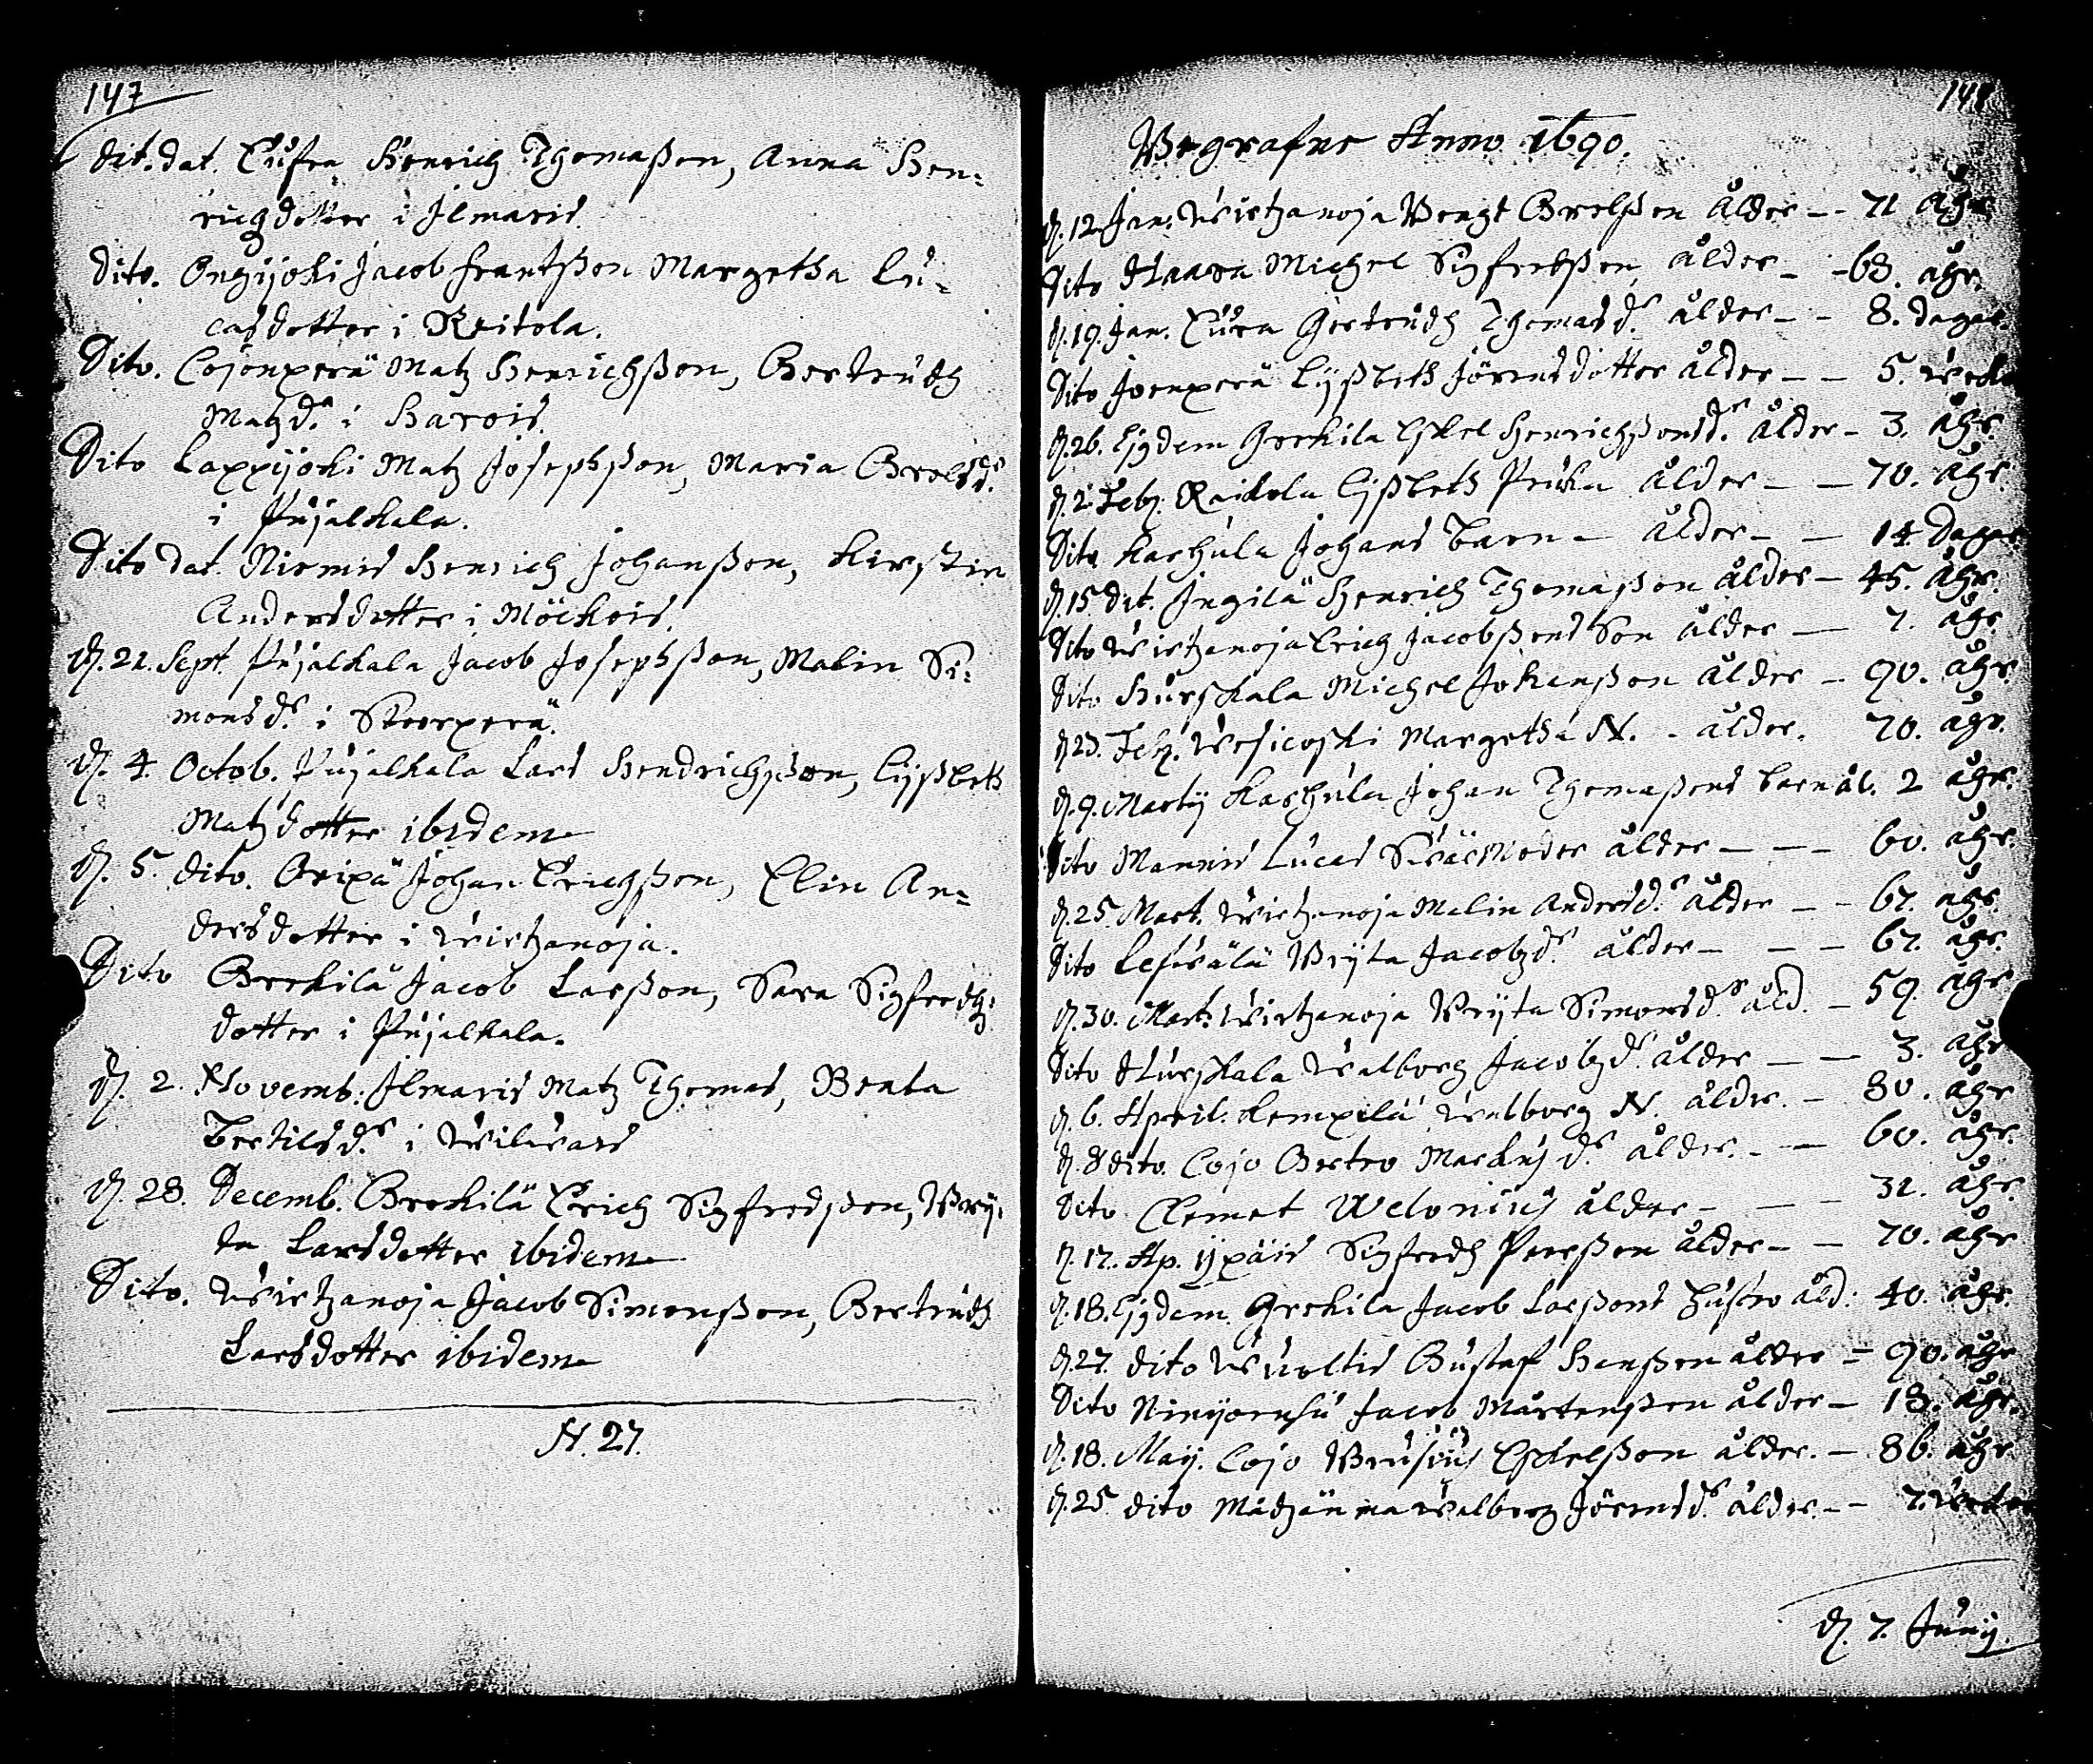 147
dit. dat. Cusra, Henrich Thomaßon, Anna Hen-
richdotter i Ilmaris.
Dito. Ongijoki Jacob Frantßon Margetha Lu-
casdotter i Reitola.
Dito. Cojonperä Matz Henrichßon, Gertrudh
Matzd.r i Harois.
Dito Lappijoki Matz Josephßon, Maria Grelsd.r
i Pujalkala.
Dito dat. Niemis Henrich Johanßon, Kirstin
Andersdotter i Möckois.
D. 21. Sept. Pujalkala Jacob Josephßon, Malin Si-
monsd.r i Skoorperä.
D. 4. Octob. Pujalkala Lars Hendrichßon, Lijßbeth
Matzdotter ibidem
D. 5. dito. Oripä Johan Erichßon, Elin An-
dersdotter i Wirtzanoja.
Dito Grekilä Jacob Larßon, Sara Sigfredh-
dotter i Pujalkala.
D. 2. Novemb: Ilmaris Matz Thomas, Benta
Bertilsd.r i Wilwais
D. 28. Decemb. Grekilä Erich Sigfredßon, Brij-
ta Larsdotter ibidem
Dito. Wirtzanoja Jacob Simonßon, Gertrudh
Larsdotter ibidem
N. 27.
148
Begrafne Anno 1690.
D. 12. Jan: Wirtzanoja Bengt Grelßon ålder -- 71 åhr
Dito Haara Michel Sigfredßon, ålder -- 63. åhr.
D. 19. Jan. Cura Gertrudh Thomasd.r ålder -- 8. dagar.
Dito Joenperä Lijßbeth Jörensdotter ålder -- 5. weck
D. 26. Ejusdem Grekila Eskel Henrichßonsd.r ålder - 3. åhr.
D. 2. Feb. Raikola Lijßbeth Pruka ålder -- 70. åhr.
Dito Karhula Johans barn - ålder -- 14 dagar
D. 15 dit. Jngilä Henrich Thomaßon ålder - 45. åhr.
Dito Wirtzanoja Erich Jacobßons Son ålder -- 7. åhr
Dito Hurskala Michel Johanßon ålder - 90. åhr.
D. 23. Feb. Wesicoski Margetha N. - ålder. 70. åhr.
D. 9. Martij Karhula Johan Thomaßons barn ål. 2 åhr.
Dito Mannis Lucas Swärmoder ålder --- 60. åhr.
D. 25 Mart. Wirtzanoja Malin Andersd.r ålder -- 67. åhr.
Dito Lefwälä Brijta Jacobzd.r ålder --- 67. åhr.
D. 30. Mart: Wirtzanoja Brijta Simonsd.r åld. - 59. åhr
Dito Hurskala Walborg Jacobzd.r ålder -- 3. åhr
D. 6. April. Kempilä Walborg N. ålder. - 80. åhr
D. 8 dito. Cojo Gertro Markusd.r ålder. -- 60. åhr.
Dito Clemet Welonius ålder -- 31. åhr.
D. 17. Ap. Ypäis Sigfredh Perßon ålder -- 70. åhr
D. 18. Ejusdem Grekila Jacob Larßons hustro åld: 40. åhr.
D. 27. dito Wuoltis Gustaf Hanßon ålder - 90. åhr
Dito Ninijoensu Jacob Mårtenßon ålder - 13. åhr.
D. 18. Maij. Cojo Brusius Eskelßon ålder. - 86. åhr
D. 25 dito Matzänma Walborg Jörensd.r ålder. -- 7. weckor
D. 7. Junij.